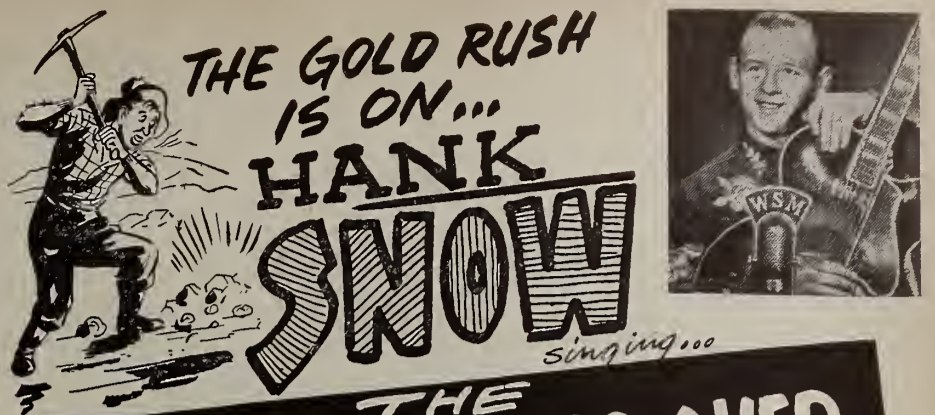 THE GOLD RUSH
IS ON...
HANK
SNOW
singing...
WSM
THE